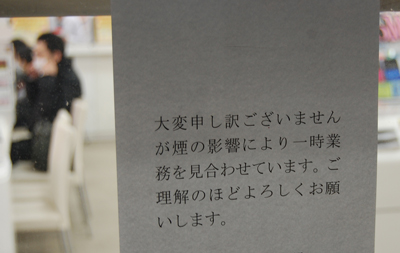 大変申し訳ございません
が煙の影響により一時業
務を見合わせています。ご
理解のほどよろしくお願
いします。